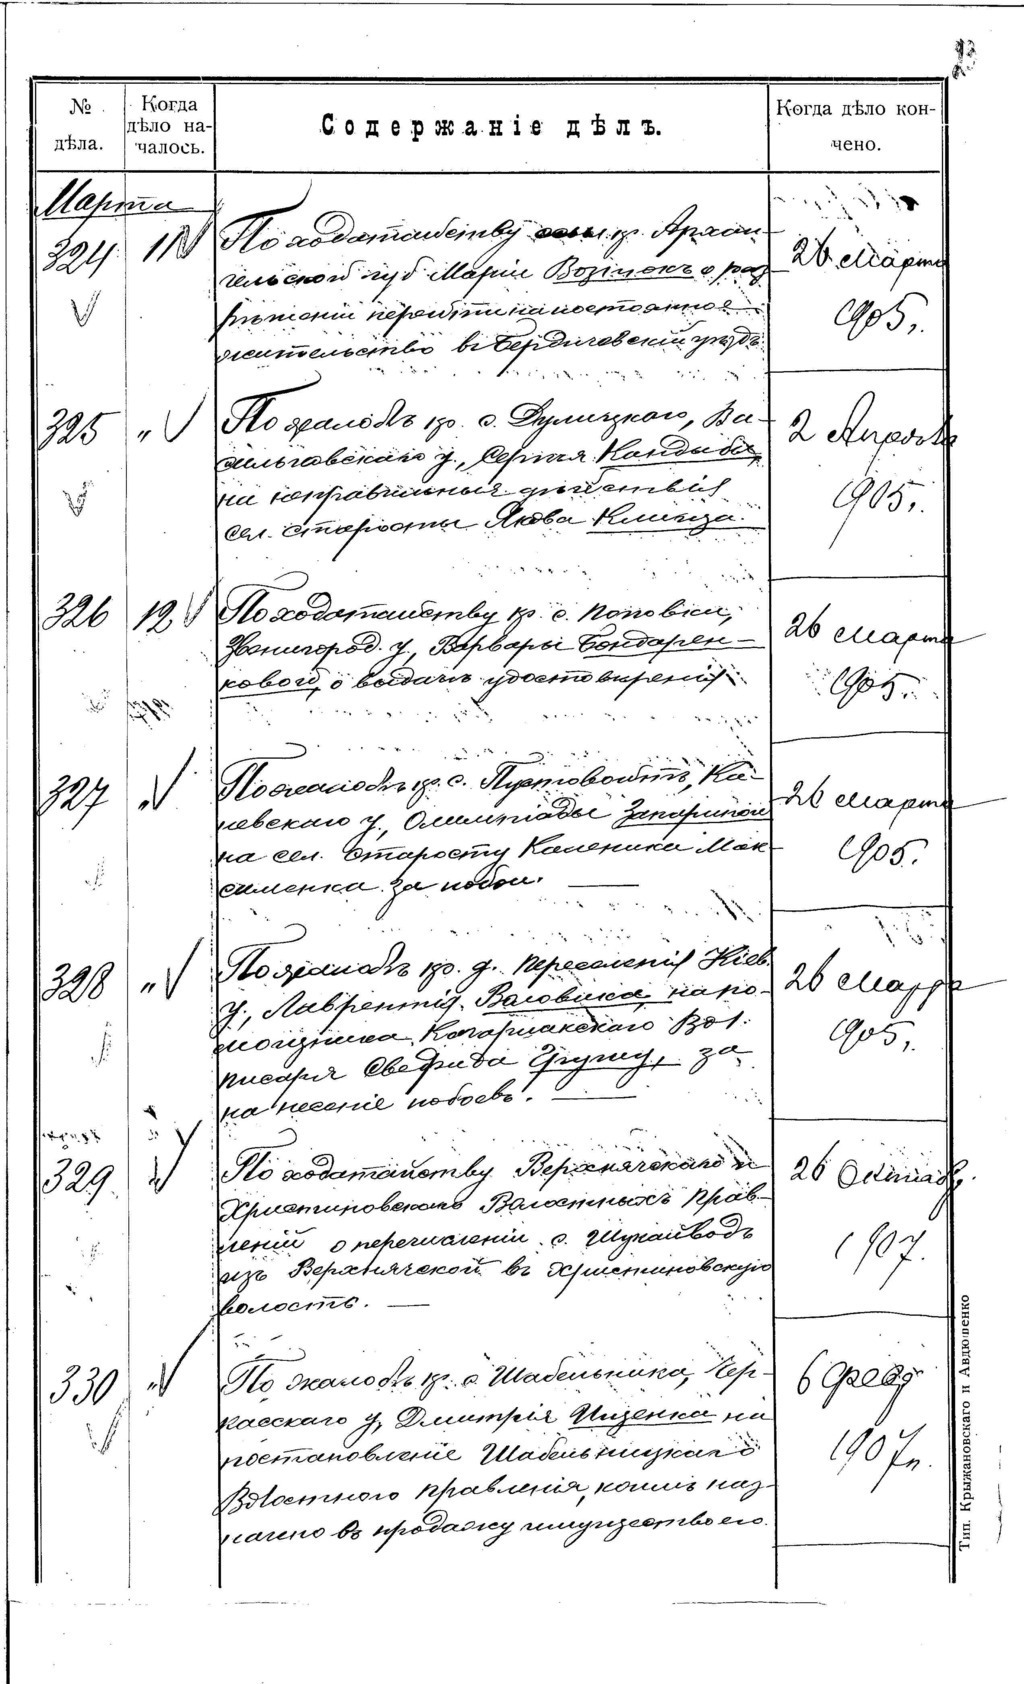 № дѣла.
Когда дѣло на-
чалось.
Содержаніе дѣлъ.
Когда дѣло кон-
чено.
Марта
324 11 По ходатайству кр. Архан-
гельской губ Маріи Возицекъ о раз
рѣшеніи перейти на постоянное
жительство въ Бердичевскій уѣздъ.
26 Марта
1905 г.
325 „ По жалобѣ кр. с. Дулицкаго, Ва-
сильковскаго у., Сергѣя Кандыбы,
на неправильныя дѣйствія
сел. старосты Якова Клинца.
2 Апрѣля
1905 г.
326 12 По ходатайству кр. с. Поповки,
Звенигород. у., Варвары Бондарен-
ковой, о выдачѣ удостовѣренія
26 Марта
1905 г.
327 „ По жалобѣ кр. с. Пустовойтъ, Ка-
невскаго у., Олимпіады
на сел. старосту Каленика Мак-
сименка за побои.
26 Марта
1905 г.
328 „ По жалобѣ кр. д. Переселенія Кіев.
у., Лаврентія Воловика, на по-
мощника Кагарлыкскаго Вол.
писаря за
нанесеніе побоевъ.
26 Марта
1905 г.
329 „ По ходатайству Верхнячскаго и
Христиновскаго Волостныхъ Прав-
леній о перечисленіи с. Шукайводъ
изъ Верхнячской въ Христиновскую
волость.
26 Октяб.
1907.
330 „ По жалобѣ кр. с. Шабельника, Чер-
касскаго у., Дмитрія Ищенка на
постановленіе Шабельницкаго
Волостного Правленія, коимъ наз-
начено въ продажу имущество его.
6 Февр
1907 г.
Тип. Крыжановскаго и Авдюшенко